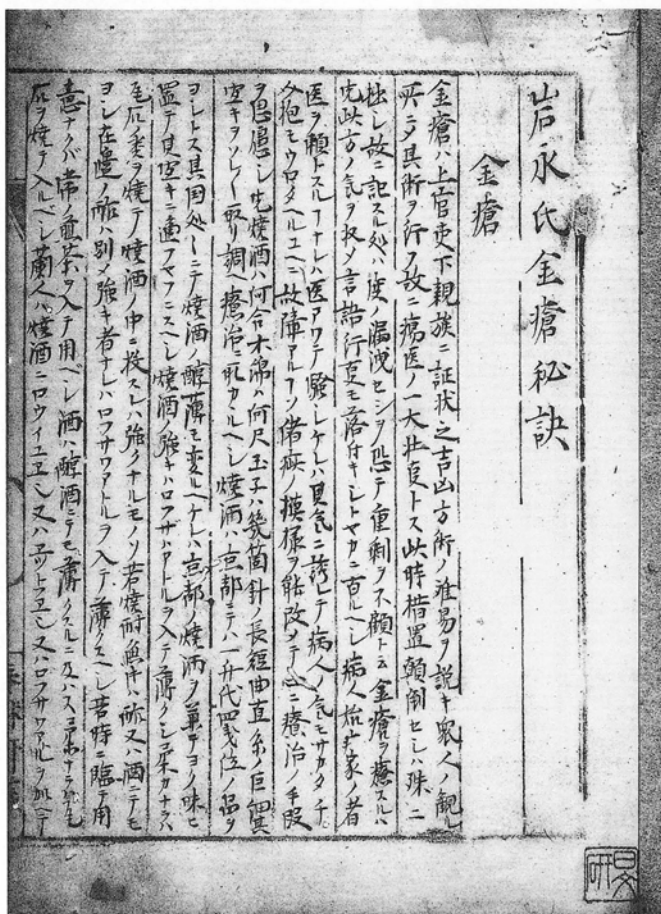 岩永氏金瘡秘訣
金瘡
金瘡ハ上官吏下親族ニ証状之吉凶方術ノ難易ヲ説キ衆人ノ観ル
所ニタ其術ヲ行フ故ニ瘍医ノ一大壮吏トス此時措置顛倒セシハ殊ニ
拙シ故ニ記スル処ハ漏洩セシヲ恐テ重剰ヲ不顧トス金瘡ヲ療スルハ
先此方ノ気ヲ収メ言語行吏モ落付キシトヤカニ有ルヘシ病人始メ家ノ者
医ヲ頼トスルフナレハ医アワテ騒シケレハ其気ニ誘レテ病人ノ気モサカタチ
抱モウロタヘルユヘニ故障アルフソ偖疾ノ模様ヲ能改メテ心ニ療治ノ手段
ヲ思慮シ先焼酒ハ何合木綿ハ何尺玉子ハ幾箇針ノ長短曲直糸ノ巨細其
ソレ〱取リ調ヘ療治ニ取カカルヘシ焼酒ハ京都ニテハ一升代四匁位ノ品ヲ
ヨシトス其国処〱ニテ焼酒ノ醇薄モ変ルヘケレハ京都ノ焼酒ヲ兼テヨク味ヒ
置テ其ニ適フヤフニスヘシ焼酒ノ強キハロフサハアトルヲ入テ薄クシ
瓦ノヲ焼テ焼酒ノ中ニ投スレハ強クナルモノソ若焼酎無キハ酢又ハ酒ニテモ
ヨシ在辺ノ酢ハ別メ強キ者ナレハロフサワアトルヲ入テ薄クスヘシ若時ニ臨テ用
意ナクバ常ノ煎茶ヲ入テ用ベシ酒ハ醇酒ニテモ薄クスルニ及ハス
瓦ヲ焼テ入ルベシ蘭人ハ焼酒ニロウイユヱン又ハヱットヱン又ハロフサワアトルヲ加ヘテ